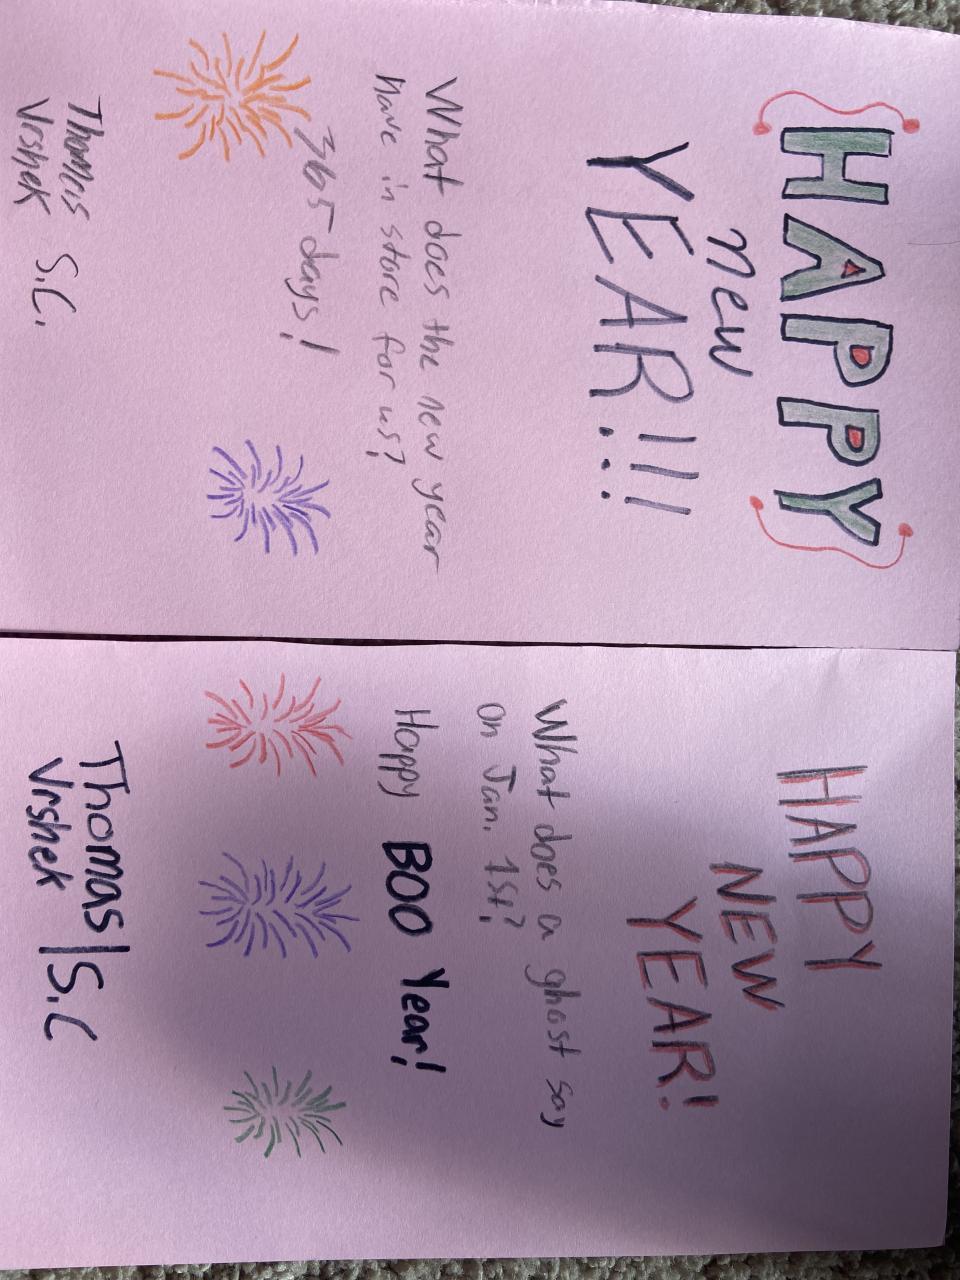 HAPPY
new
YEAR!!!
What does the new year
have in store for us?
365 days!
Thomas S.C.
Vrshek
HAPPY
NEW
YEAR!
What does a ghost say
on Jan. 1st?
Happy BOO Year!
Thomas | S.C
Vrshek